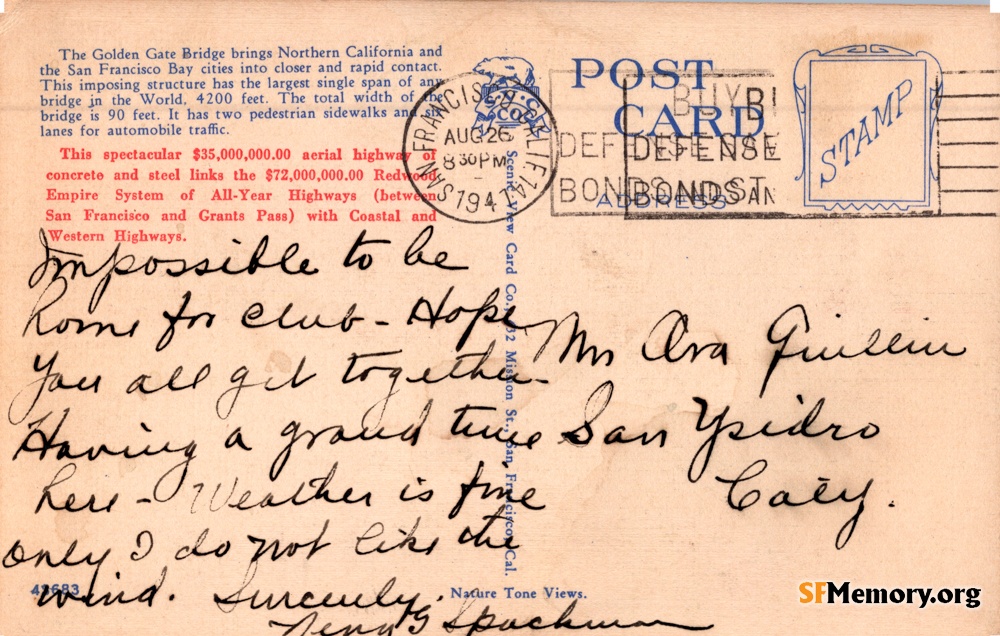 The Golden Gate Bridge brings Northern California and
the San Francisco Bay cities into closer and rapid contact.
This imposing structure has the largest single span of any
bridge in the World, 4200 feet. The total width of the
bridge is 90 feet. It has two pedestrian sidewalks and six
lanes for automobile traffic.
This spectacular $35,000,000.00 aerial highway of
concrete and steel links the $72,000,000.00 Redwood
Empire System of All-Year Highways (between
San Francisco and Grants Pass) with Coastal and
Western Highways.
POST
CARD
ADDRESS
STAMP
SAN FRANCISCO, CALIF. 14
AUG 26
8 30 PM
1947
BUY
DEFENSE
BONDS AND ST
BI
DEFENSE
BONDS AN
Impossible to be
home for club - Hope
You all get together -
Having a grand time
here - Weather is fine
only I do not like the
wind. Sincerely.
Spackman
Mrs Ora
San Ysidro
Calif.
Scenic View Card Co., Mission St., San Francisco, Cal.
Nature Tone Views.
SFMemory.org